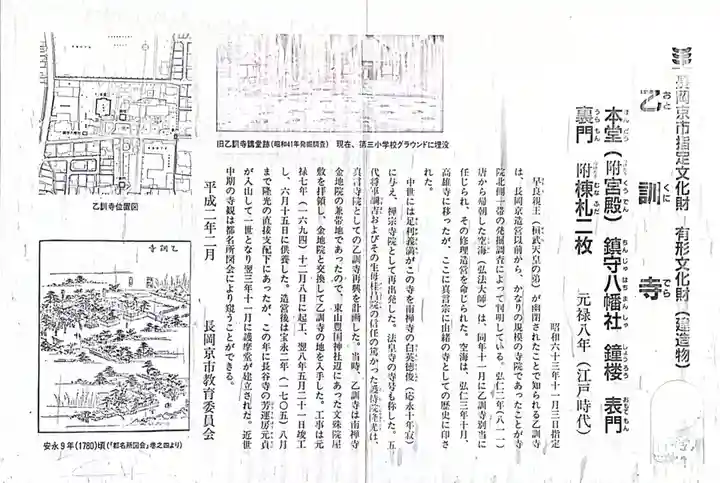 長岡京市指定文化財 有形文化財（建造物）
乙訓寺
おとくにでら
本堂（附宮殿）鎮守八幡社 鐘楼 表門
ほんどう くうでん ちんじゅはちまんしゃ しょうろう おもてもん
裏門 附棟札二枚 元禄八年（江戸時代）
うらもん むなふだ
昭和六十三年十一月三日指定
早良親王（桓武天皇の弟）が幽閉されたことで知られる乙訓寺
は、長岡京造営以前から、かなりの規模の寺院であったことが寺
院北側一帯の発掘調査によって判明している。弘仁二年（八一一）
唐から帰朝した空海（弘法大師）は、同年十一月に乙訓寺別当に
任じられ、その修理造営を命じられた。空海は、弘仁三年十月、
高雄寺に移ったが、ここに真言宗に由緒の寺としての歴史に印さ
れた。
中世には足利義満がこの寺を南禅寺の伯英徳俊（応永十年寂）
に与え、禅宗寺院として再出発した。法皇寺の寺号も称した。五
代将軍綱吉およびその生母桂昌院の信任の篤かった護持院隆光は、
真言寺院としての乙訓寺再興を計画した。当時、乙訓寺は南禅寺
金地院の兼帯地であったので、東山豊国神社辺にあった文殊院屋
敷を拝領し、金地院と交換して乙訓寺の地を入手した。工事は元
禄七年（一六九四）十二月八日に起工、翌八年五月二十一日竣工
し、六月十五日に供養した。造営後は宝永二年（一七〇五）八月
まで隆光の直接支配下にあったが、この年に長谷寺の芳運房元貞
が入山して一世となり翌三年十一月に護摩堂が建立された。近世
中期の寺観は都名所図会により窺うことができる。
平成二年二月 長岡京市教育委員会
旧乙訓寺講堂跡（昭和41年発掘調査） 現在、第三小学校グラウンドに埋没
乙訓寺位置図
乙訓寺
安永9年(1780)頃（「都名所図会」巻之四より）